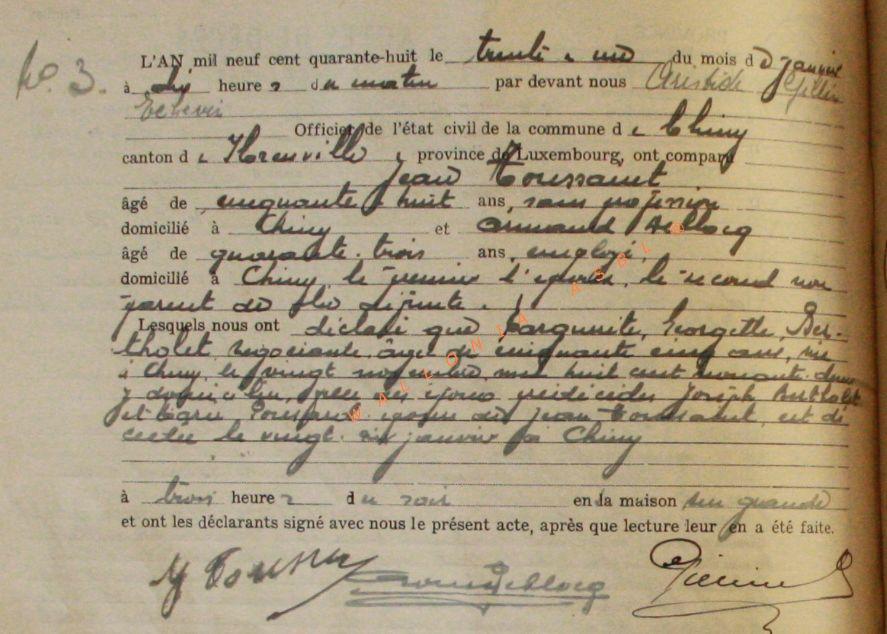 No. 3.
L'AN mil neuf cent quarante-huit le trente e une du mois de janvier
à dix heures du matin par devant nous Aristide
Echevin
Officier de l'état civil de la commune de Chiny
canton de Florenville, province de Luxembourg, ont comparu
Jean Toussaint
âgé de cinquante huit ans, sans profession
domicilié à Chiny et Armand
âgé de quarante-trois ans, employé,
domicilié à Chiny, le premier l'époux, le second non
parent de la défunte.
Lesquels nous ont déclaré que Marguerite, Georgette, Ber-
tholet, négociante, âgée de cinquante cinq ans, née
à Chiny, le vingt novembre mil huit cent nonante-deux
y domiciliée, fille des époux prédécédés Joseph Bertholet
et Marie épouse de Jean Toussaint, est dé
cédée le vingt-six janvier à Chiny
à trois heures du soir en la maison
et ont les déclarants signé avec nous le présent acte, après que lecture leur en a été faite.
WALLONIA ASBL